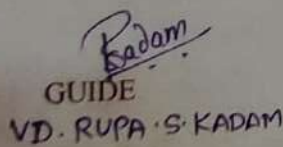 Kadam
GUIDE
VD. RUPA.S.KADAM